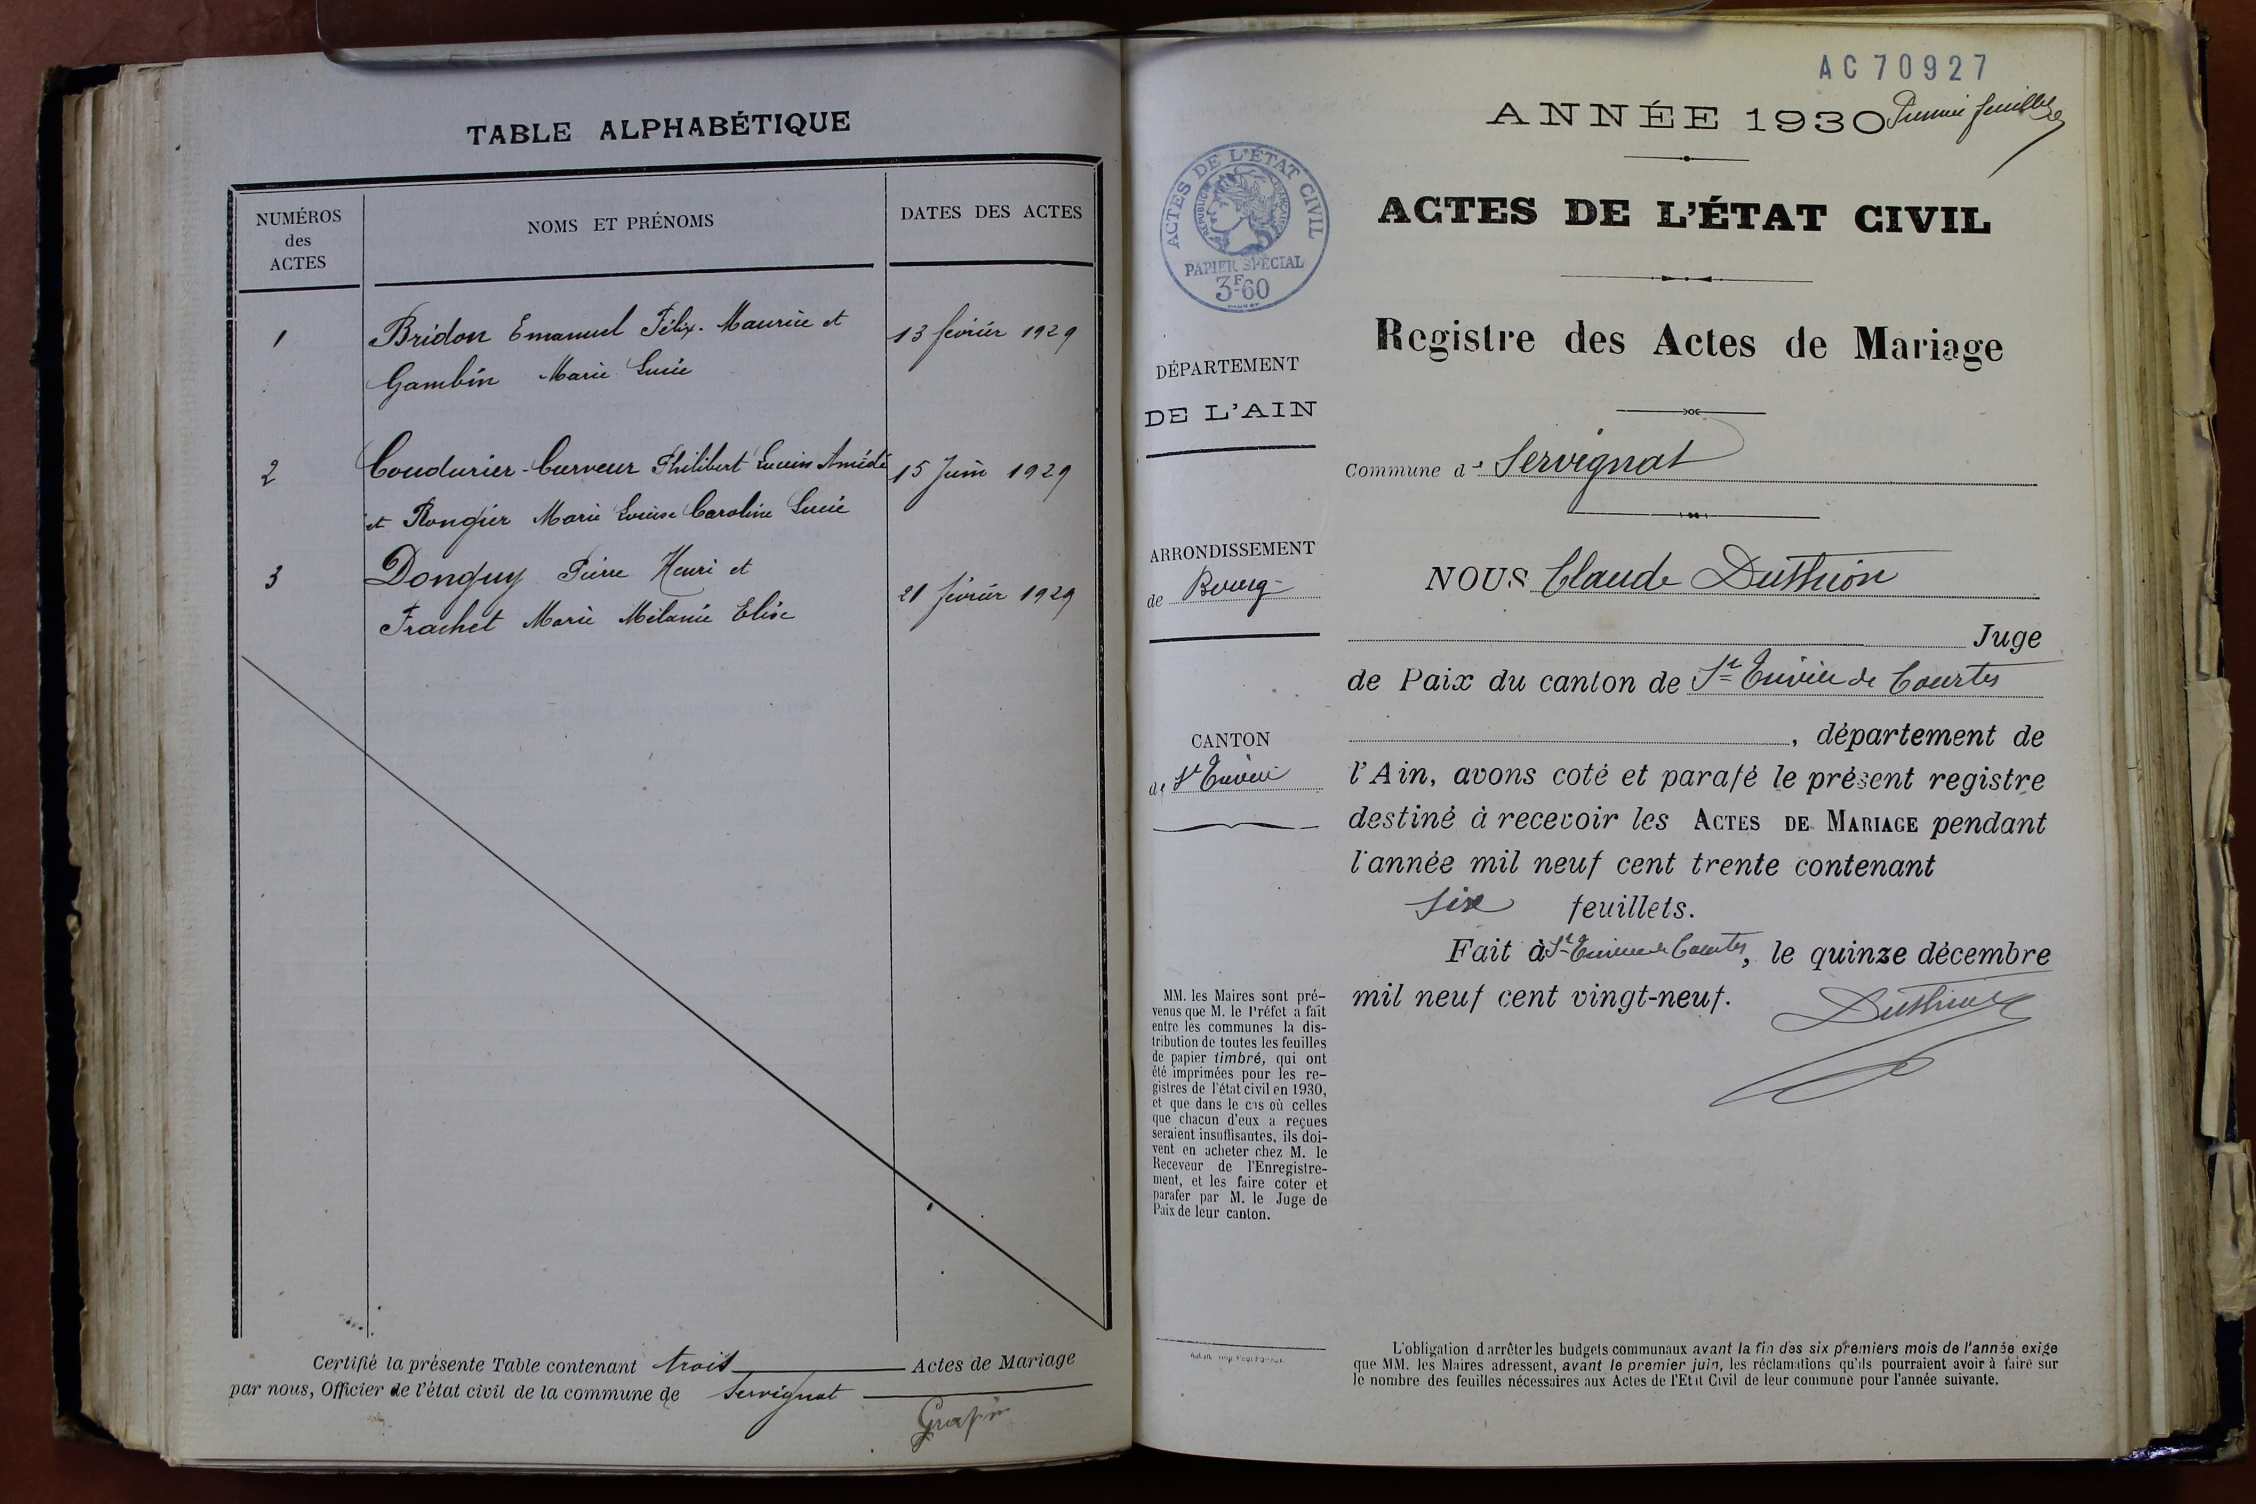 TABLE ALPHABÉTIQUE
NUMÉROS
des
ACTES
NOMS ET PRÉNOMS
DATES DES ACTES
1 Bridon Emanuel Félix Maurice et 13 février 1929
Gambin Marie Lucie
2 Coudurier-Curveur Philibert Lucien Amédé 15 Juin 1929
et Rongier Marie Louise Caroline Lucie
3 Donguy Pierre Henri et 21 février 1929
Frachet Marie Mélanie Elise
Certifié la présente Table contenant trois Actes de Mariage
par nous, Officier de l'état civil de la commune de Servignat
AC70927
ANNÉE 1930 Premier feuillet
ACTES DE L'ÉTAT CIVIL
RÉPUBLIQUE FRANÇAISE
PAPIER SPÉCIAL
3F60
ACTES DE L'ÉTAT CIVIL
Registre des Actes de Mariage
DÉPARTEMENT
DE L'AIN
Commune de Servignat
ARRONDISSEMENT
de Bourg
CANTON
de St Trivier
NOUS Claude Duthion
Juge
de Paix du canton de St Trivier de Courtes
, département de
l'Ain, avons coté et parafé le présent registre
destiné à recevoir les ACTES DE MARIAGE pendant
l'année mil neuf cent trente contenant
six feuillets.
Fait à St Trivier de Courtes, le quinze décembre
mil neuf cent vingt-neuf.
Duthion
MM. les Maires sont pré-
venus que M. le Préfet a fait
entre les communes la dis-
tribution de toutes les feuilles
de papier timbré, qui ont
été imprimées pour les re-
gistres de l'état civil en 1930,
et que dans le cas où celles
que chacun d'eux a reçues
seraient insuffisantes, ils doi-
vent en acheter chez M. le
Receveur de l'Enregistre-
ment, et les faire coter et
parafer par M. le Juge de
Paix de leur canton.
L'obligation d'arrêter les budgets communaux avant la fin des six premiers mois de l'année exige
que MM. les Maires adressent, avant le premier juin, les réclamations qu'ils pourraient avoir à faire sur
le nombre des feuilles nécessaires aux Actes de l'Etat Civil de leur commune pour l'année suivante.